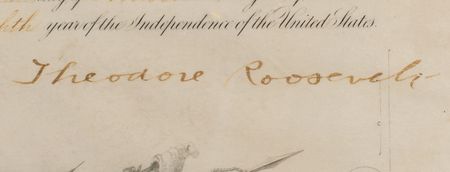 year of the Independence of the United States.
Theodore Roosevelt